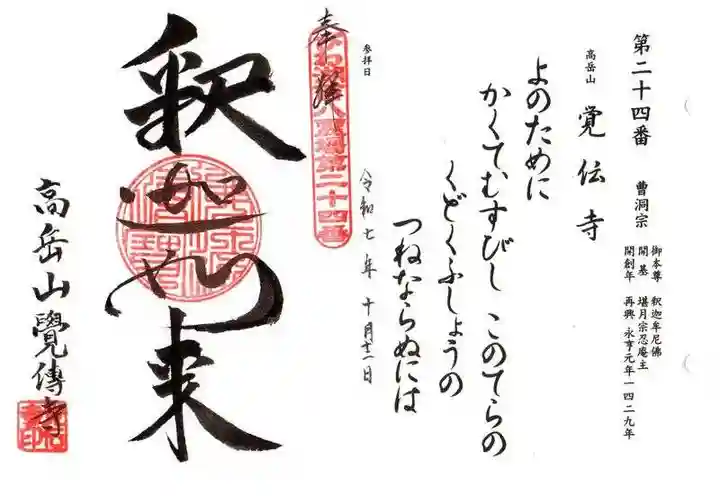 第二十四番 曹洞宗
御本尊 釈迦牟尼佛
開基 堪月宗忍庵主
開創年 再興 永亨元年一四二九年
高岳山 覚伝寺
よのために
かくてむすびし このてらの
くどくふしょうの
つねならぬには
参拝日
令和七年 十月十二日
奉拝
第二十四番
釈迦如来
高岳山覺傳寺